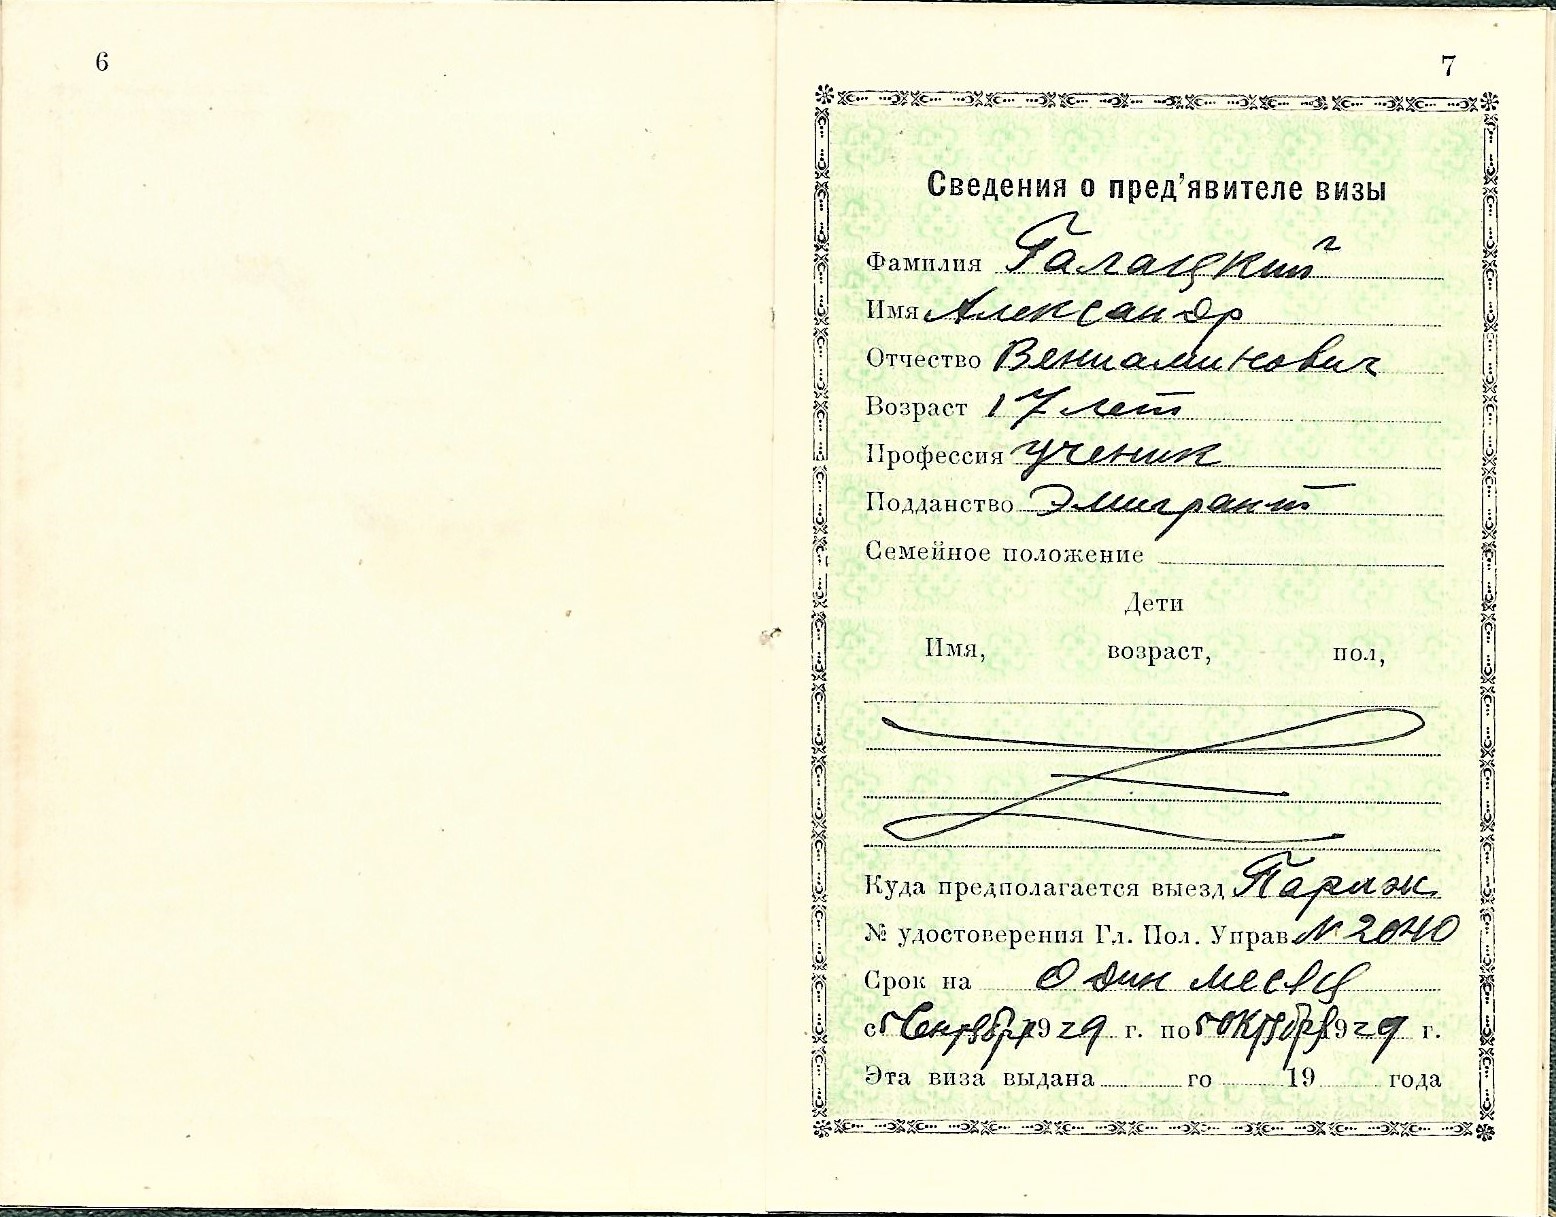 6
7
Сведения о пред'явителе визы
Фамилия Галацкий
Имя Александр
Отчество Вениаминович
Возраст 17 лет
Профессия ученик
Подданство Эмигрант
Семейное положение
Дети
Имя, возраст, пол,
Куда предполагается выезд Париж
№ удостоверения Гл. Пол. Управ. № 2040
Срок на один месяц
с 5 Сентября 1929 г. по 5 Октября 1929 г.
Эта виза выдана го 19 года